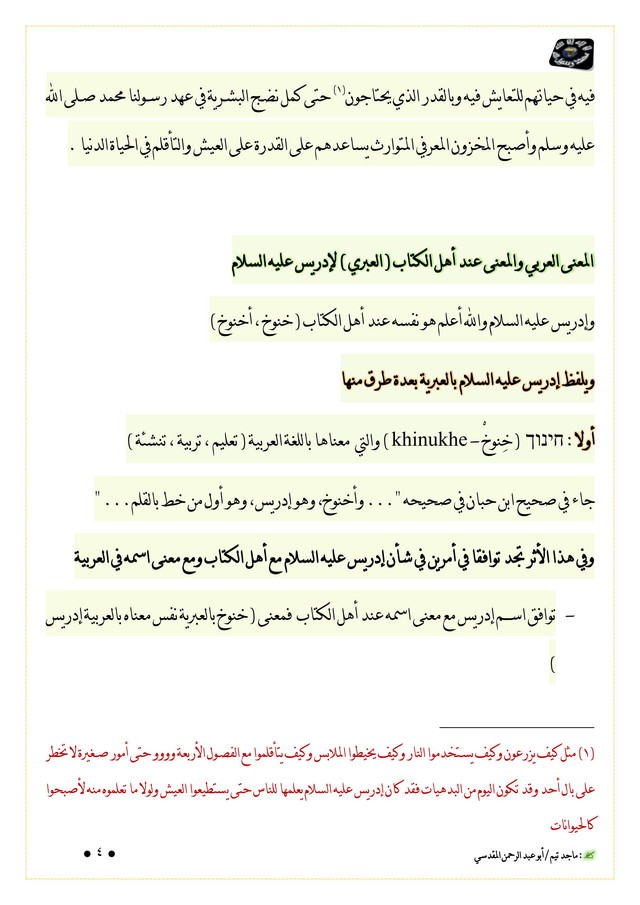 فيه في حياتهم للتعايش فيه وبالقدر الذي يحتاجون(١) حتى كمل نضج البشرية في عهد رسولنا محمد صلى الله
عليه وسلم وأصبح المخزون المعرفي المتوارث يساعدهم على القدرة على العيش والتأقلم في الحياة الدنيا .
المعنى العربي والمعنى عند أهل الكتاب ( العبري ) لإدريس عليه السلام
وإدريس عليه السلام والله أعلم هو نفسه عند أهل الكتاب ( خنوخ ، أخنوخ )
ويلفظ إدريس عليه السلام بالعبرية بعدة طرق منها
أولا : חינוך ( خِنوخْ – khinukhe ) والتي معناها باللغة العربية ( تعليم ، تربية ، تنشئة )
جاء في صحيح ابن حبان في صحيحه " ... وأخنوخ، وهو إدريس، وهو أول من خط بالقلم ... "
وفي هذا الأثر تجد توافقا في أمرين في شأن إدريس عليه السلام مع أهل الكتاب ومع معنى اسمه في العربية
– توافق اسم إدريس مع معنى اسمه عند أهل الكتاب فمعنى ( خنوخ بالعبرية نفس معناه بالعربية إدريس
)
(١) مثل كيف يزرعون وكيف يستخدموا النار وكيف يخيطوا الملابس وكيف يتأقلموا مع الفصول الأربعة وووو حتى أمور صغيرة لا تخطر
على بال أحد وقد تكون اليوم من البدهيات فقد كان إدريس عليه السلام يعلمها للناس حتى يستطيعوا العيش ولولا ما تعلموه منه لأصبحوا
كالحيوانات
: ماجد تيم / أبو عبد الرحمن المقدسي
• ٤ •